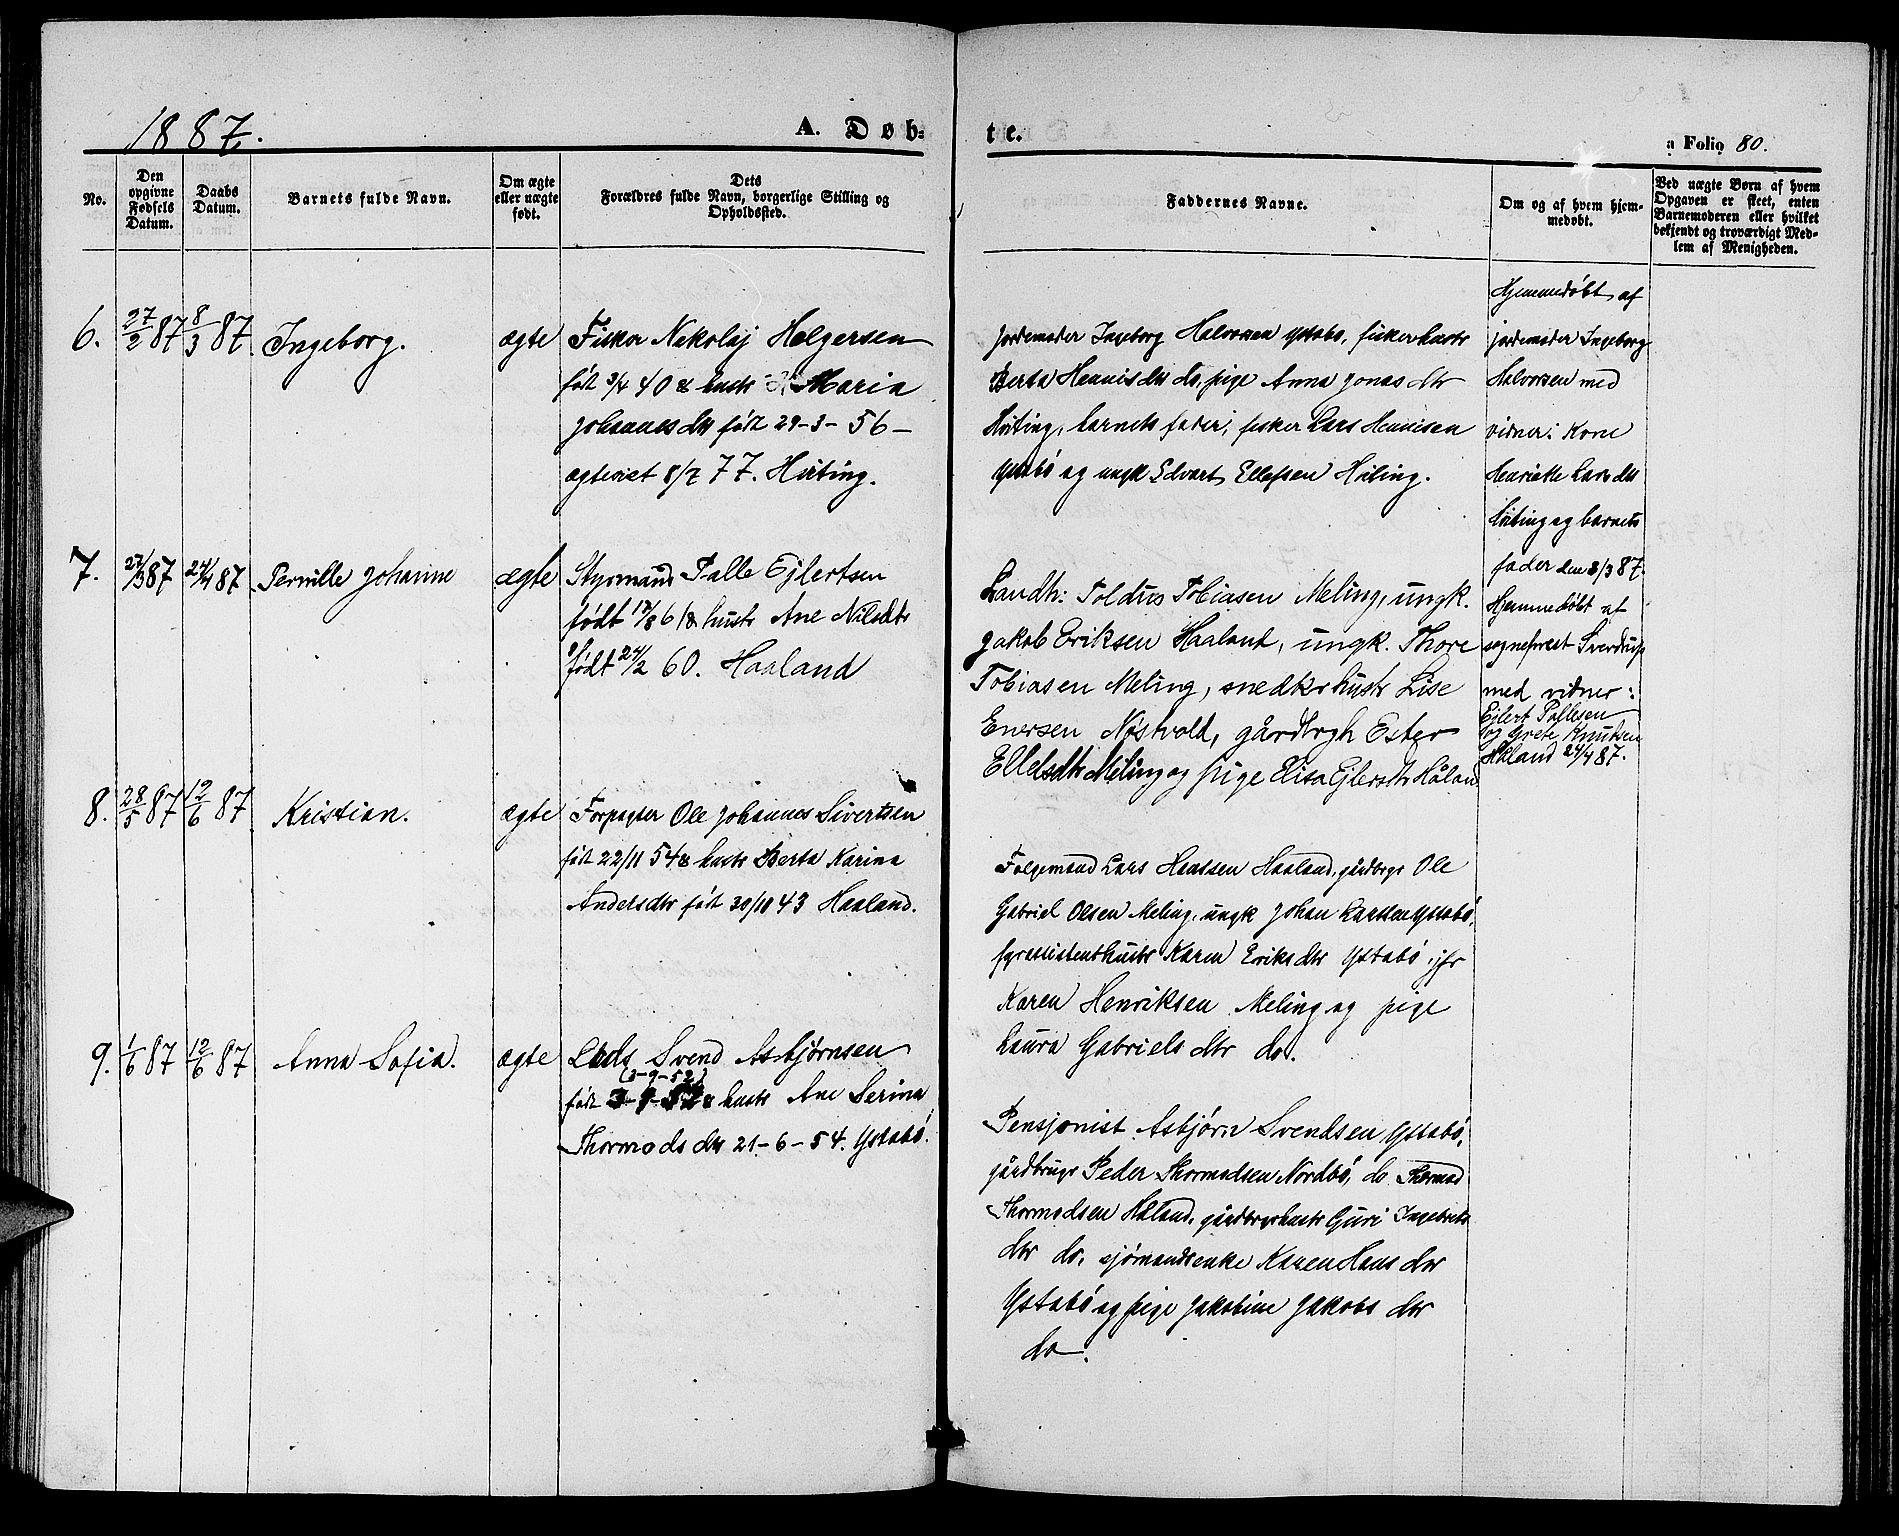 1887.
A. Døb-
te.
a Folio 80.
No.
Den opgivne Fødsels Datum.
Daabs Datum.
Barnets fulde Navn.
Om ægte eller uægte født.
Dets Forældres fulde Navn, borgerlige Stilling og Opholdssted.
Faddernes Navne.
Om og af hvem hjemmedøbt.
Ved uægte Børn af hvem Opgaven er skeet, enten Barnemoderen eller hvilket bekjendt og troværdigt Medlem af Menigheden.
6.
27/2 87
8/3 87
Ingeborg.
ægte
Fisker Nikolaj Helgersen
født 3/4 40 & hustr Maria
Johannesdtr født 29-3-56-
ægteviet 8/7 77. Hviting.
Jordemoder Ingeborg Halvorsen Ystabø, fiskerhustr
Berta Hennisdtr do, pige Anna Jonasdtr
Hviting, barnets fader, fisker Lars Hennisen
Ystabø og ungk Edvart Ellefsen Hviting.
Hjemmedøbt af
jordemoder Ingeborg
Halvorsen med
vidner: Kone
Henrikke Larsdtr
Hviting og barnets
fader den 3/3 87.
7.
27/3 87
24/4 87
Pernille Johanne
ægte
Styrmand Palle Ejlertsen
født 17/8 61 & hustr Ane Nilsdtr
født 24/2 60. Haaland
Landh: Poldus Tobiasen Meling, ungk.
Jakob Eriksen Haaland, ungk. Thore
Tobiasen Meling, snedkerhustr Lise
Enersen Nøstvold, gårdbrgh Ester
Ellefsdtr Meling og pige Elisa Ejlersdtr Håland
Hjemmedøbt af
sognepræst Sverdrup
med vidner:
Ejlert Pallesen
og Grete Knutsen
Håland 24/4 87.
8.
28/5 87
12/6 87
Kristian.
ægte
Forpagter Ole Johannes Sivertsen
født 22/11 54 & hustr Berta Karina
Andersdtr født 30/10 43 Haaland.
Følgemand Lars Hanssen Haaland, gårdbrgr Ole
Gabriel Olsen Meling, ungk Johan Larsen Ystabø,
fyrassistenthustr Karen Eriksdtr Ystabø, jfr
Karen Henriksen Meling og pige
Laura Gabrielsdtr do.
9.
1/6 87
12/6 87
Anna Sofia.
ægte
Lods Svend Asbjørnsen
(3-9-52)
født 3-9-52 & hustr Ane Serina
Thormodsdtr 21-6-54. Ystabø.
Pensjonist Asbjørn Svendsen Ystabø,
gårdbrugr Peder Thormodsen Nordbø, do Thormod
Thormodsen Håland, gårdbrgrhustr Guri Ingebrets
dtr do, sjømandsenke Karen Hansdtr
Ystabø og pige Jakobine Jakobsdtr
do.